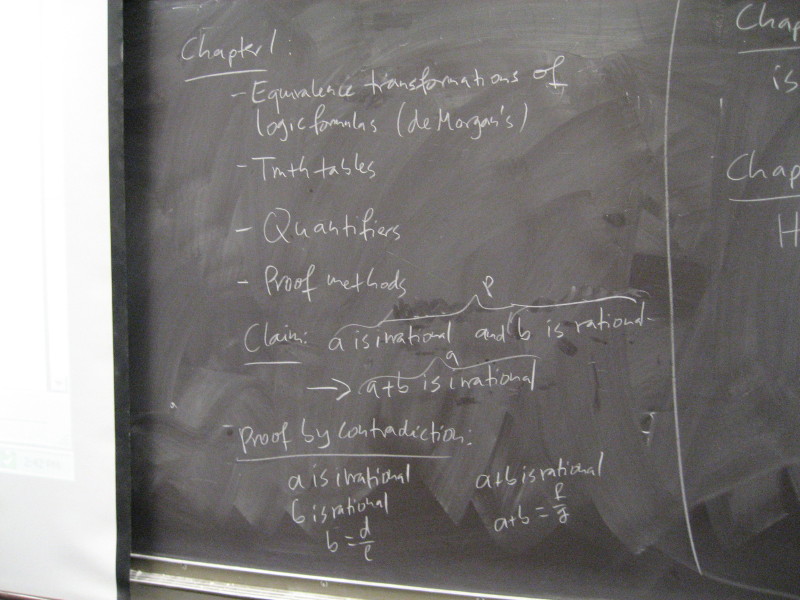 Chapter 1:
- Equivalence transformations of
logic formulas (deMorgan's)
- Truth tables
- Quantifiers
- Proof methods
P
Claim: a is irrational and b is rational.
q
→ a+b is irrational
- Proof by contradiction:
a is irrational
b is rational
b = d/e
a+b is rational
a+b = f/g
Chap
is
Chap
H